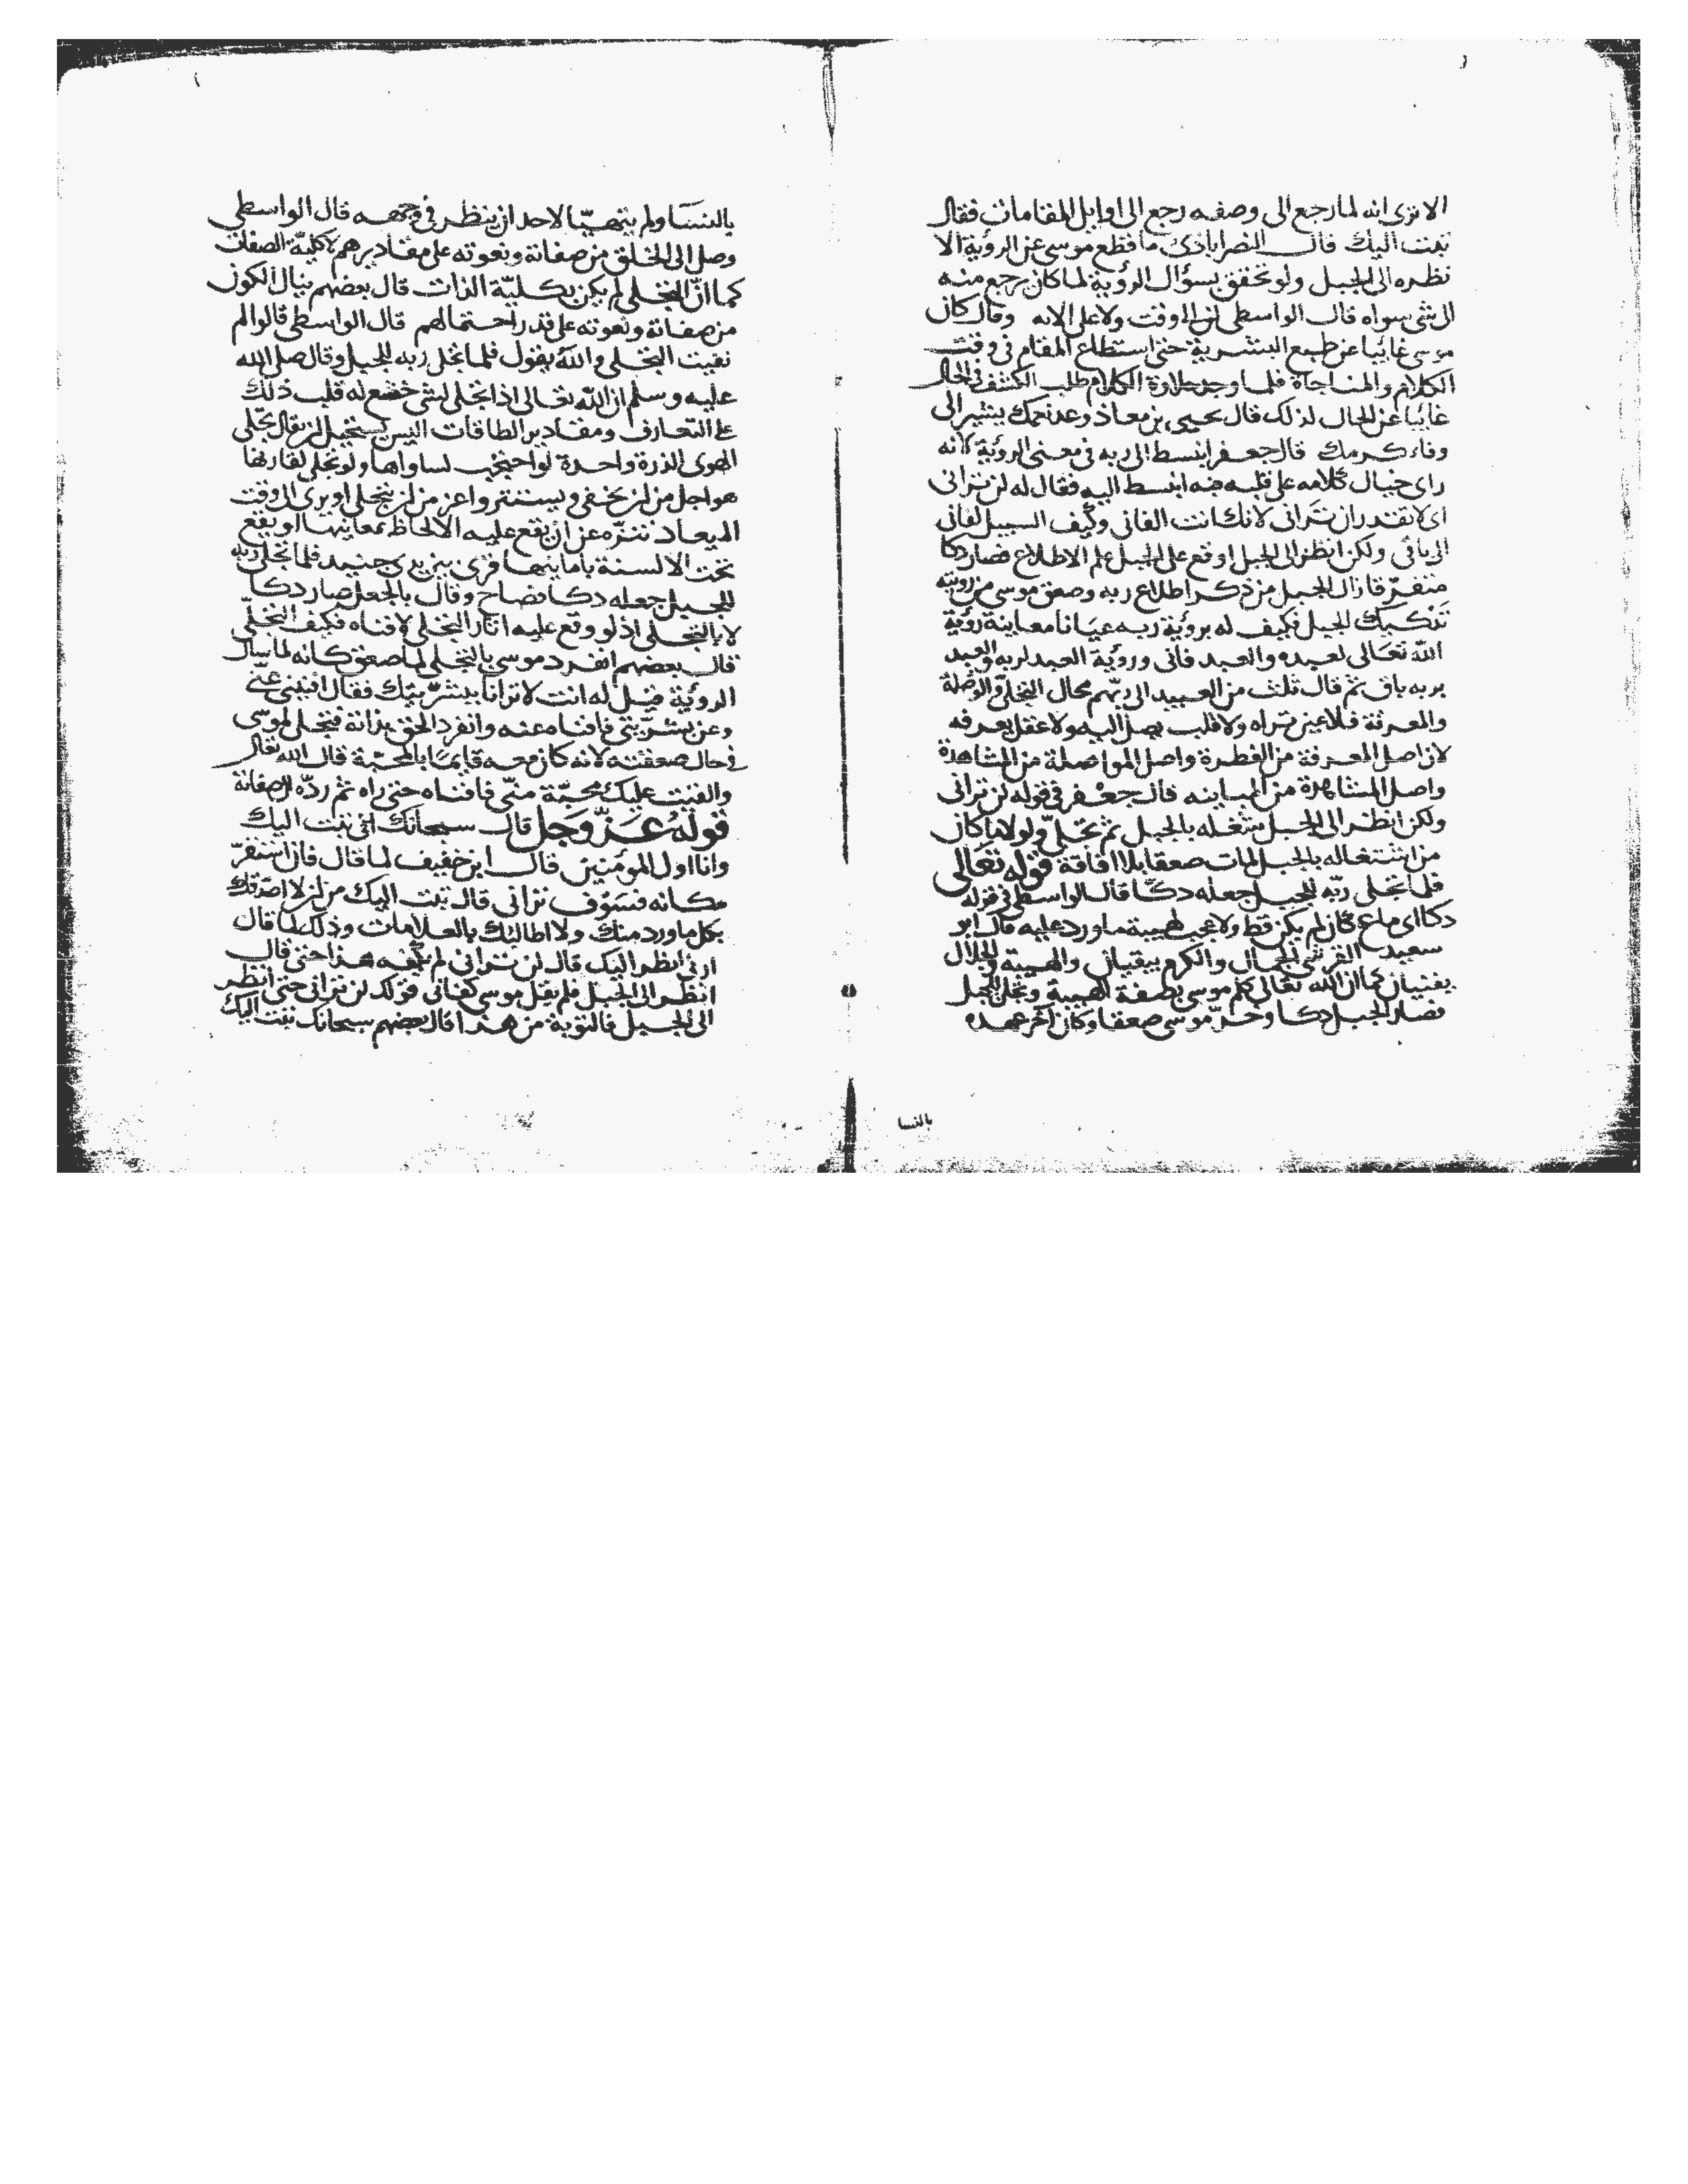 الا ترى انه لما رجع الى وصفه رجع الى اوايل المقامات فقال
تبت اليك قال النصراباذى ما قطع موسى عن الرؤية الا
نظره الى الجبل ولو تحقق بسؤال الرؤية لما كان رجع منه
الى شى سواه قال الواسطى لن الوقت ولا على الابد وقال كان
موسى غايبا عن طبع البشرية حتى استطاع المقام فى وقت
الكلام والمناجاة فلما وجد حلاوة الكلام طلب الكشف فى الحال
غايبا عن الحال لذلك قال يحيى بن معاذ وعد نحمك يشير الى
وفاء كرمك قال جعفر انبسط الى ربه فى معنى الرؤية لانه
راى خيال كلامه على قلبه فبه انبسط اليه فقال له لن ترانى
اى لا تقدر ان ترانى لانك انت الفانى وكيف السبيل لفانى
الى باقى ولكن انظر الى الجبل اوقع على الجبل علم الاطلاع فصار دكا
متفرقا زال الجبل من ذكر اطلاع ربه وصعق موسى من رويته
تدكيك الجبل فكيف له برؤية ربه عيانا معاينة رؤية
الله تعالى لعبده والعبد فانى ورؤية العبد لربه والعبد
بربه باق ثم قال ثلث من العبيد الى ربهم محال التجلى والوصلة
والمعرفة فلا عين تراه ولا قلب يصل اليه ولا عقل يعرفه
لان اصل المعرفة من الفطرة واصل المواصلة من المشاهدة
واصل المشاهدة من المباينه قال جعفر فى قوله لن ترانى
ولكن انظر الى الجبل شغله بالجبل ثم تجلى ولولا ما كان
من اشتغاله بالجبل لمات صعقا بلا افاقة قوله تعالى
فلما تجلى ربه للجبل جعله دكا قال الواسطى فى قوله
دكا اى ملء كان لم يكن قط ولا عجب لهيبة ما ورد عليه قال ابو
سعيد القرشى الجمال والكرم يبقيان والهيبة والجلال
يفنيان كما ان الله تعالى كلم موسى بصفة الهيبة وتجلى للجبل
فصار الجبل دكا وخر موسى صعقا وكان آخر عهده
بالنسا
بالنسا ولم يتهيا لاحد ان ينظر فى وجهه قال الواسطى
وصل الى الخلق من صفاته ونعوته على مقاديرهم لا كلية الصفات
كما ان التجلى لم يكن بكلية الذات قال بعضهم ينال الكون
من صفاته ونعوته على قدر احتمالهم قال الواسطى قالوا لم
نفيت التجلى والله يقول فلما تجلى ربه للجبل وقال صلى الله
عليه وسلم ان الله تعالى اذا تجلى لشى خضع له قلت ذلك
على التعارف ومقادير الطاقات اليس يستحيل لن يقال تجلى
الهوى لذرة واحدة لو احتجب لساواها ولو تجلى لقارنها
هو اجل من لن يخفى ويستتر واعز من لن يتجلى او يرى الى وقت
الميعاد تنزه عن ان يقع عليه الالحاظ بمعاينها او يقع
تحت الالسنة باماينها قرى بين يدى جنيد فلما تجلى ربه
للجبل جعله دكا فصاح وقال بالجعل صار دكا
لا بالتجلى اذ لو وقع عليه اثار التجلى لافناه فكيف التجلى
قال بعضهم انفرد موسى بالتجلى لما صعق كانه لما سال
الرؤية قيل له انت لا ترانا ببشريتك فقال افننى عنى
وعن بشريتى فافناه عنه وانفرد الحق بذاته فتجلى لموسى
فى حال صعقته لانه كان معه قايما بالمحبة قال الله تعالى
والقيت عليك محبة منى فافناه حتى راه ثم رده الى صفاته
قوله عز وجل قال سبحانك انى تبت اليك
وانا اول المومنين قال ابن خفيف لما قال فان استقر
مكانه فسوف ترانى قال تبت اليك من لن لا اصدقك
بكل ما ورد منك ولا اطالبك بالعلامات وذلك لما قال
ارنى انظر اليك قال لن ترانى لم يكفه هذا حتى قال
انظر الى الجبل فلم يقل موسى كفانى قولك لن ترانى حتى انظر
الى الجبل فالتوبة من هذا قال بعضهم سبحانك تبت اليك